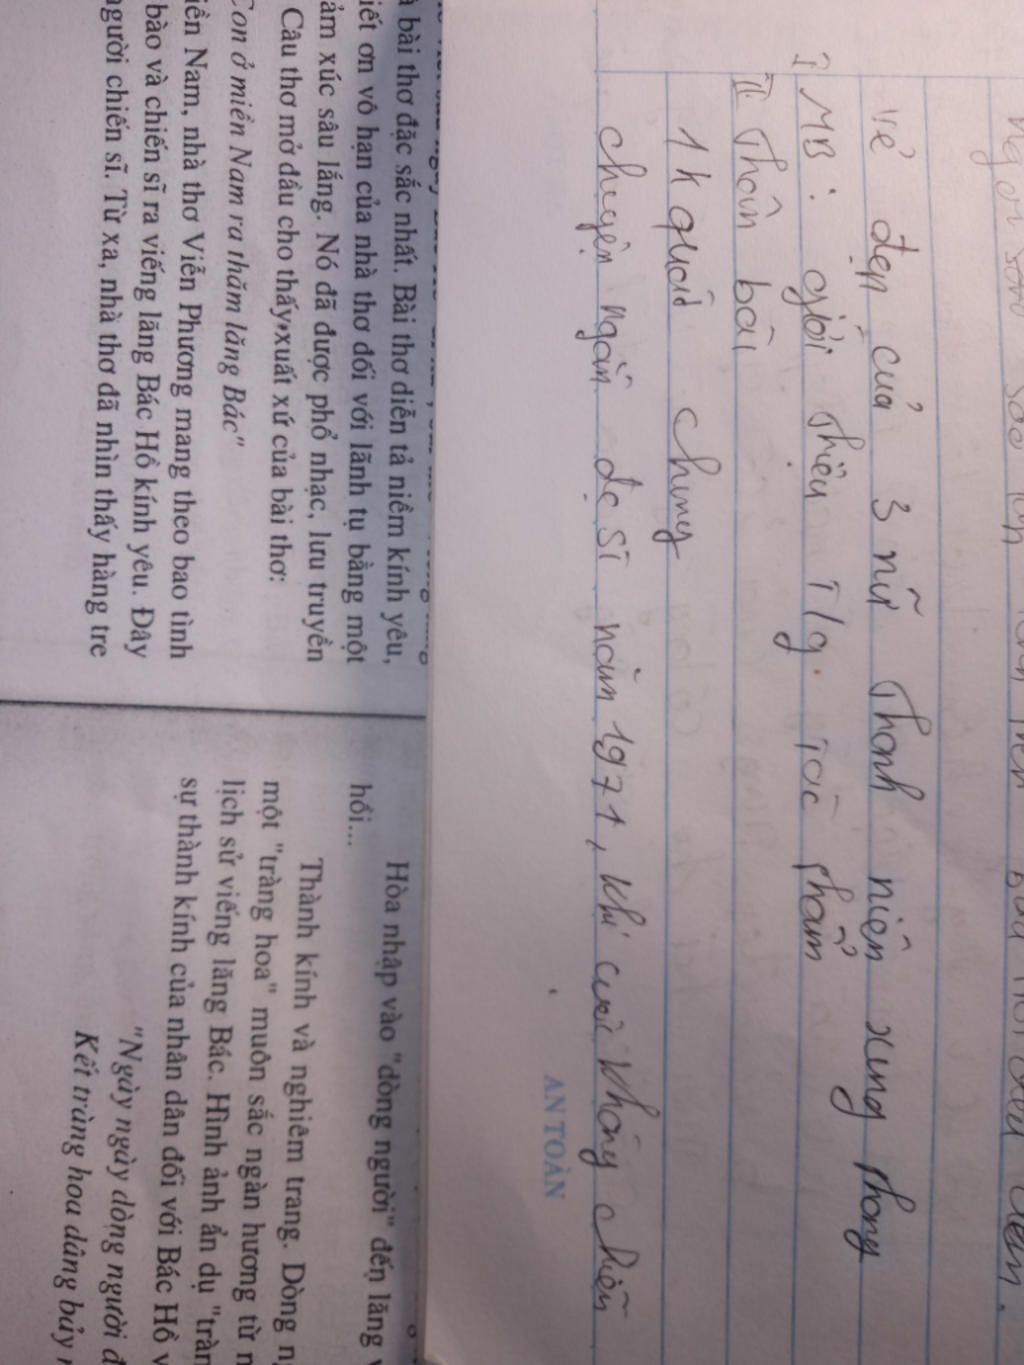 Vẻ đẹp của 3 nữ thanh niên xung phong
I MB: giới thiệu T/g. tác phẩm
II Thân bài
1 kquát chung
chuyện ngắn đc St năm 1971, khi cuộc kháng chiến
AN TOÀN
à bài thơ đặc sắc nhất. Bài thơ diễn tả niềm kính yêu,
iết ơn vô hạn của nhà thơ đối với lãnh tụ bằng một
ảm xúc sâu lắng. Nó đã được phổ nhạc, lưu truyền
Câu thơ mở đầu cho thấy xuất xứ của bài thơ:
Con ở miền Nam ra thăm lăng Bác"
iền Nam, nhà thơ Viễn Phương mang theo bao tình
bào và chiến sĩ ra viếng lăng Bác Hồ kính yêu. Đây
người chiến sĩ. Từ xa, nhà thơ đã nhìn thấy hàng tre
Hòa nhập vào "dòng người" đến lăng
hồi...
Thành kính và nghiêm trang. Dòng
một "tràng hoa" muôn sắc ngàn hương từ
lịch sử viếng lăng Bác. Hình ảnh ẩn dụ "tràn
sự thành kính của nhân dân đối với Bác Hồ
"Ngày ngày dòng người đ
Kết tràng hoa dâng bảy